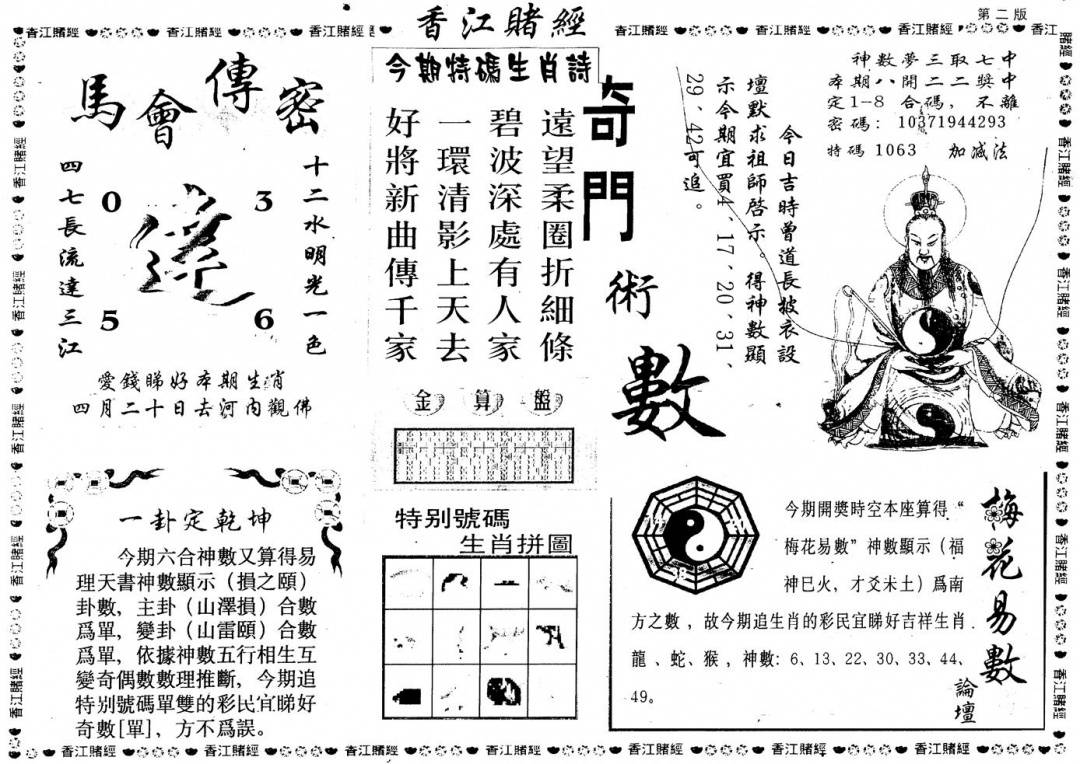 香江賭經
第二版
馬會傳密
四七長流達三江
0
3
5
6
十二水明光一色
愛錢睇好本期生肖
四月二十日去河內觀佛
今期特碼生肖詩
遠望柔圈折細條
碧波深處有人家
一環清影上天去
好將新曲傳千家
金算盤
奇門術數
今日吉時曾道長披衣設
壇默求祖師啓示。得神數顯
示今期宜買4、17、20、31、
29、42可追。
神數夢三取七中
本期八開二二獎中
定1-8合碼,不離
密碼:10371944293
特碼1063 加減法
一卦定乾坤
今期六合神數又算得易
理天書神數顯示(損之頤)
卦數,主卦(山澤損)合數
爲單,變卦(山雷頤)合數
爲單,依據神數五行相生互
變奇偶數數理推斷,今期追
特別號碼單雙的彩民宜睇好
奇數[單],方不爲誤。
特別號碼
生肖拼圖
梅花易數
論壇
今期開獎時空本座算得“
梅花易數”神數顯示(福
神巳火,才爻未土)爲南
方之數,故今期追生肖的彩民宜睇好吉祥生肖
龍、蛇、猴,神數:6、13、22、30、33、44、
49。